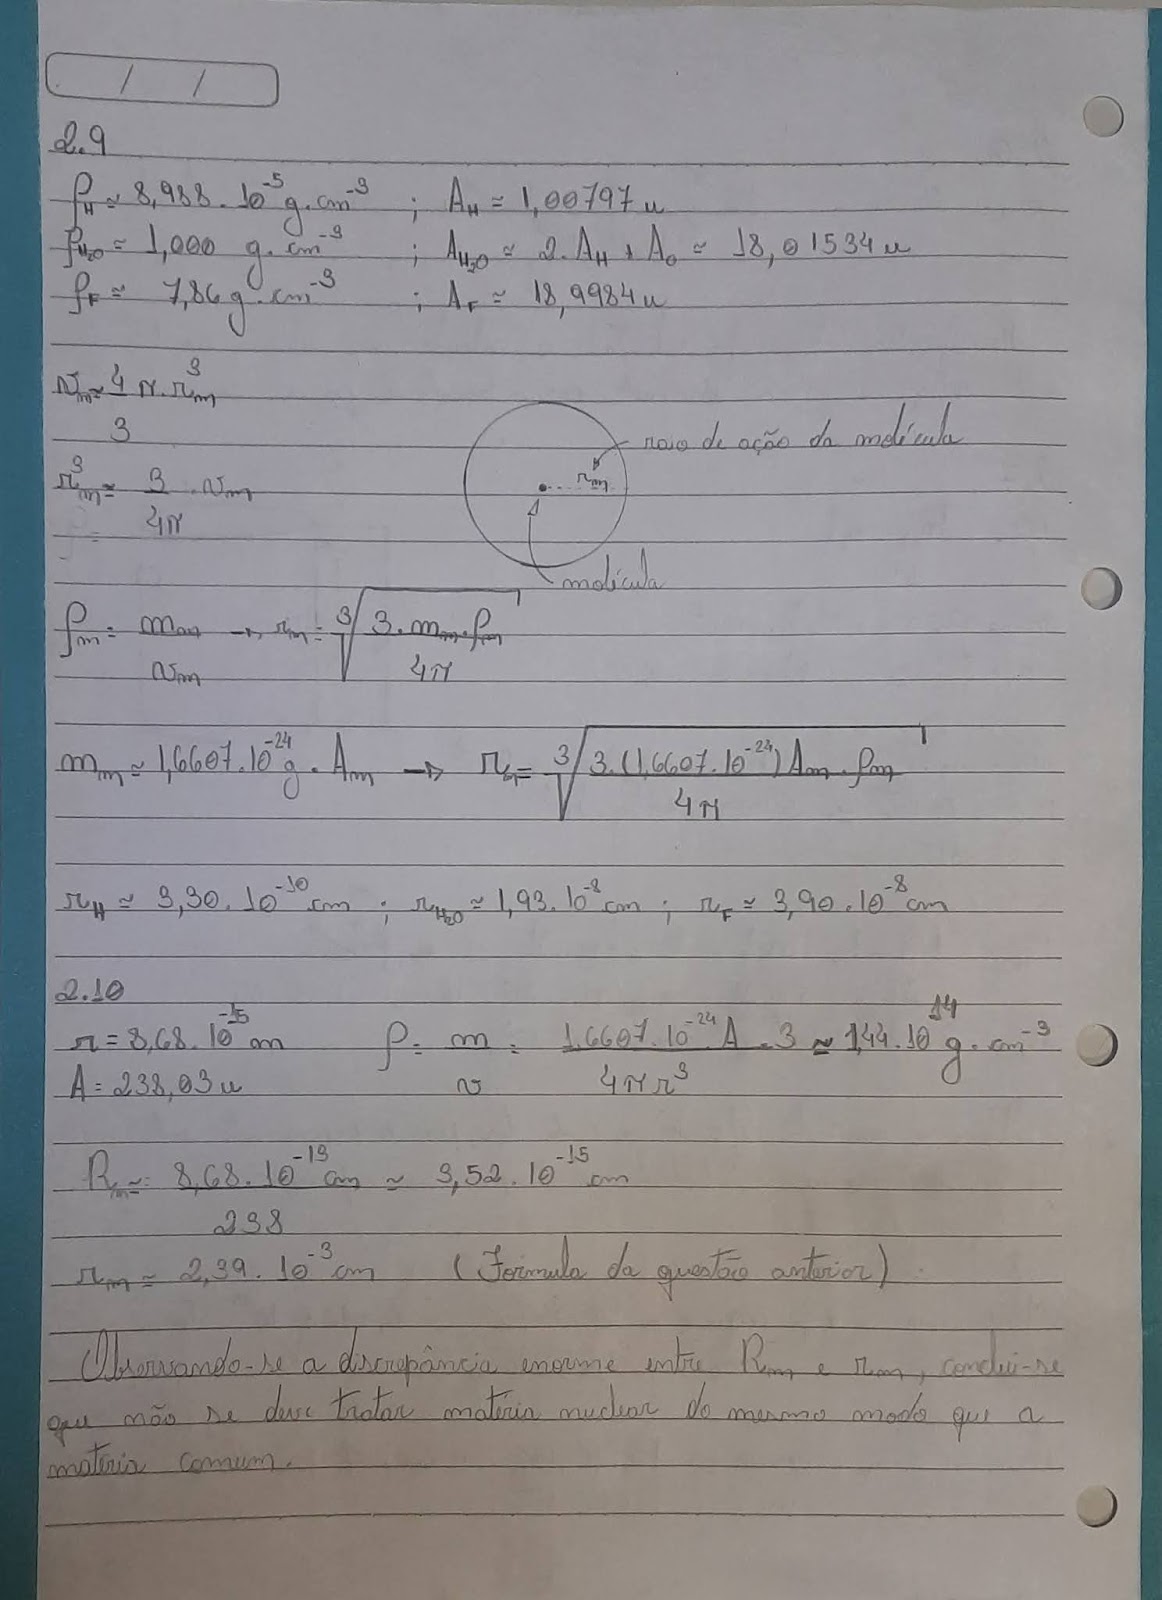 / /
2.9
ρ_H ≃ 8,988 . 10^-5 g . cm^-3 ; A_H ≃ 1,00797 u
ρ_H2O ≃ 1,000 g . cm^-3 ; A_H2O ≃ 2. A_H + A_O ≃ 18,01534 u
ρ_F ≃ 7,86 g . cm^-3 ; A_F ≃ 18,9984 u
v_m ≃ 4 π . r_m^3
3
raio de ação da molécula
r_m^3 ≃ 3 . v_m
4π
r_m
molécula
ρ_m = m_m → r_m = ∛ 3 . m_m . ρ_m
v_m 4π
m_m ≃ 1,6607 . 10^-24 g . A_m → r_m = ∛ 3 . (1,6607 . 10^-24) A_m . ρ_m
4π
r_H ≃ 3,30 . 10^-10 cm ; r_H2O ≃ 1,93 . 10^-8 cm ; r_F ≃ 3,90 . 10^-8 cm
2.10
r = 8,68 . cm ρ = m = 1,6607 . 10^-24 A . 3 ≃ 1,44 . 10^14 g . cm^-3
A = 238,03 u v 4π r^3
R_m ≃ 8,68 . 10^-13 cm ≃ 3,52 . 10^-15 cm
238
r_m ≃ 2,39 . 10^-3 cm (Fórmula da questão anterior)
Observando-se a discrepância enorme entre R_m e r_m, conclui-se
que não se deve tratar matéria nuclear do mesmo modo que a
matéria comum.